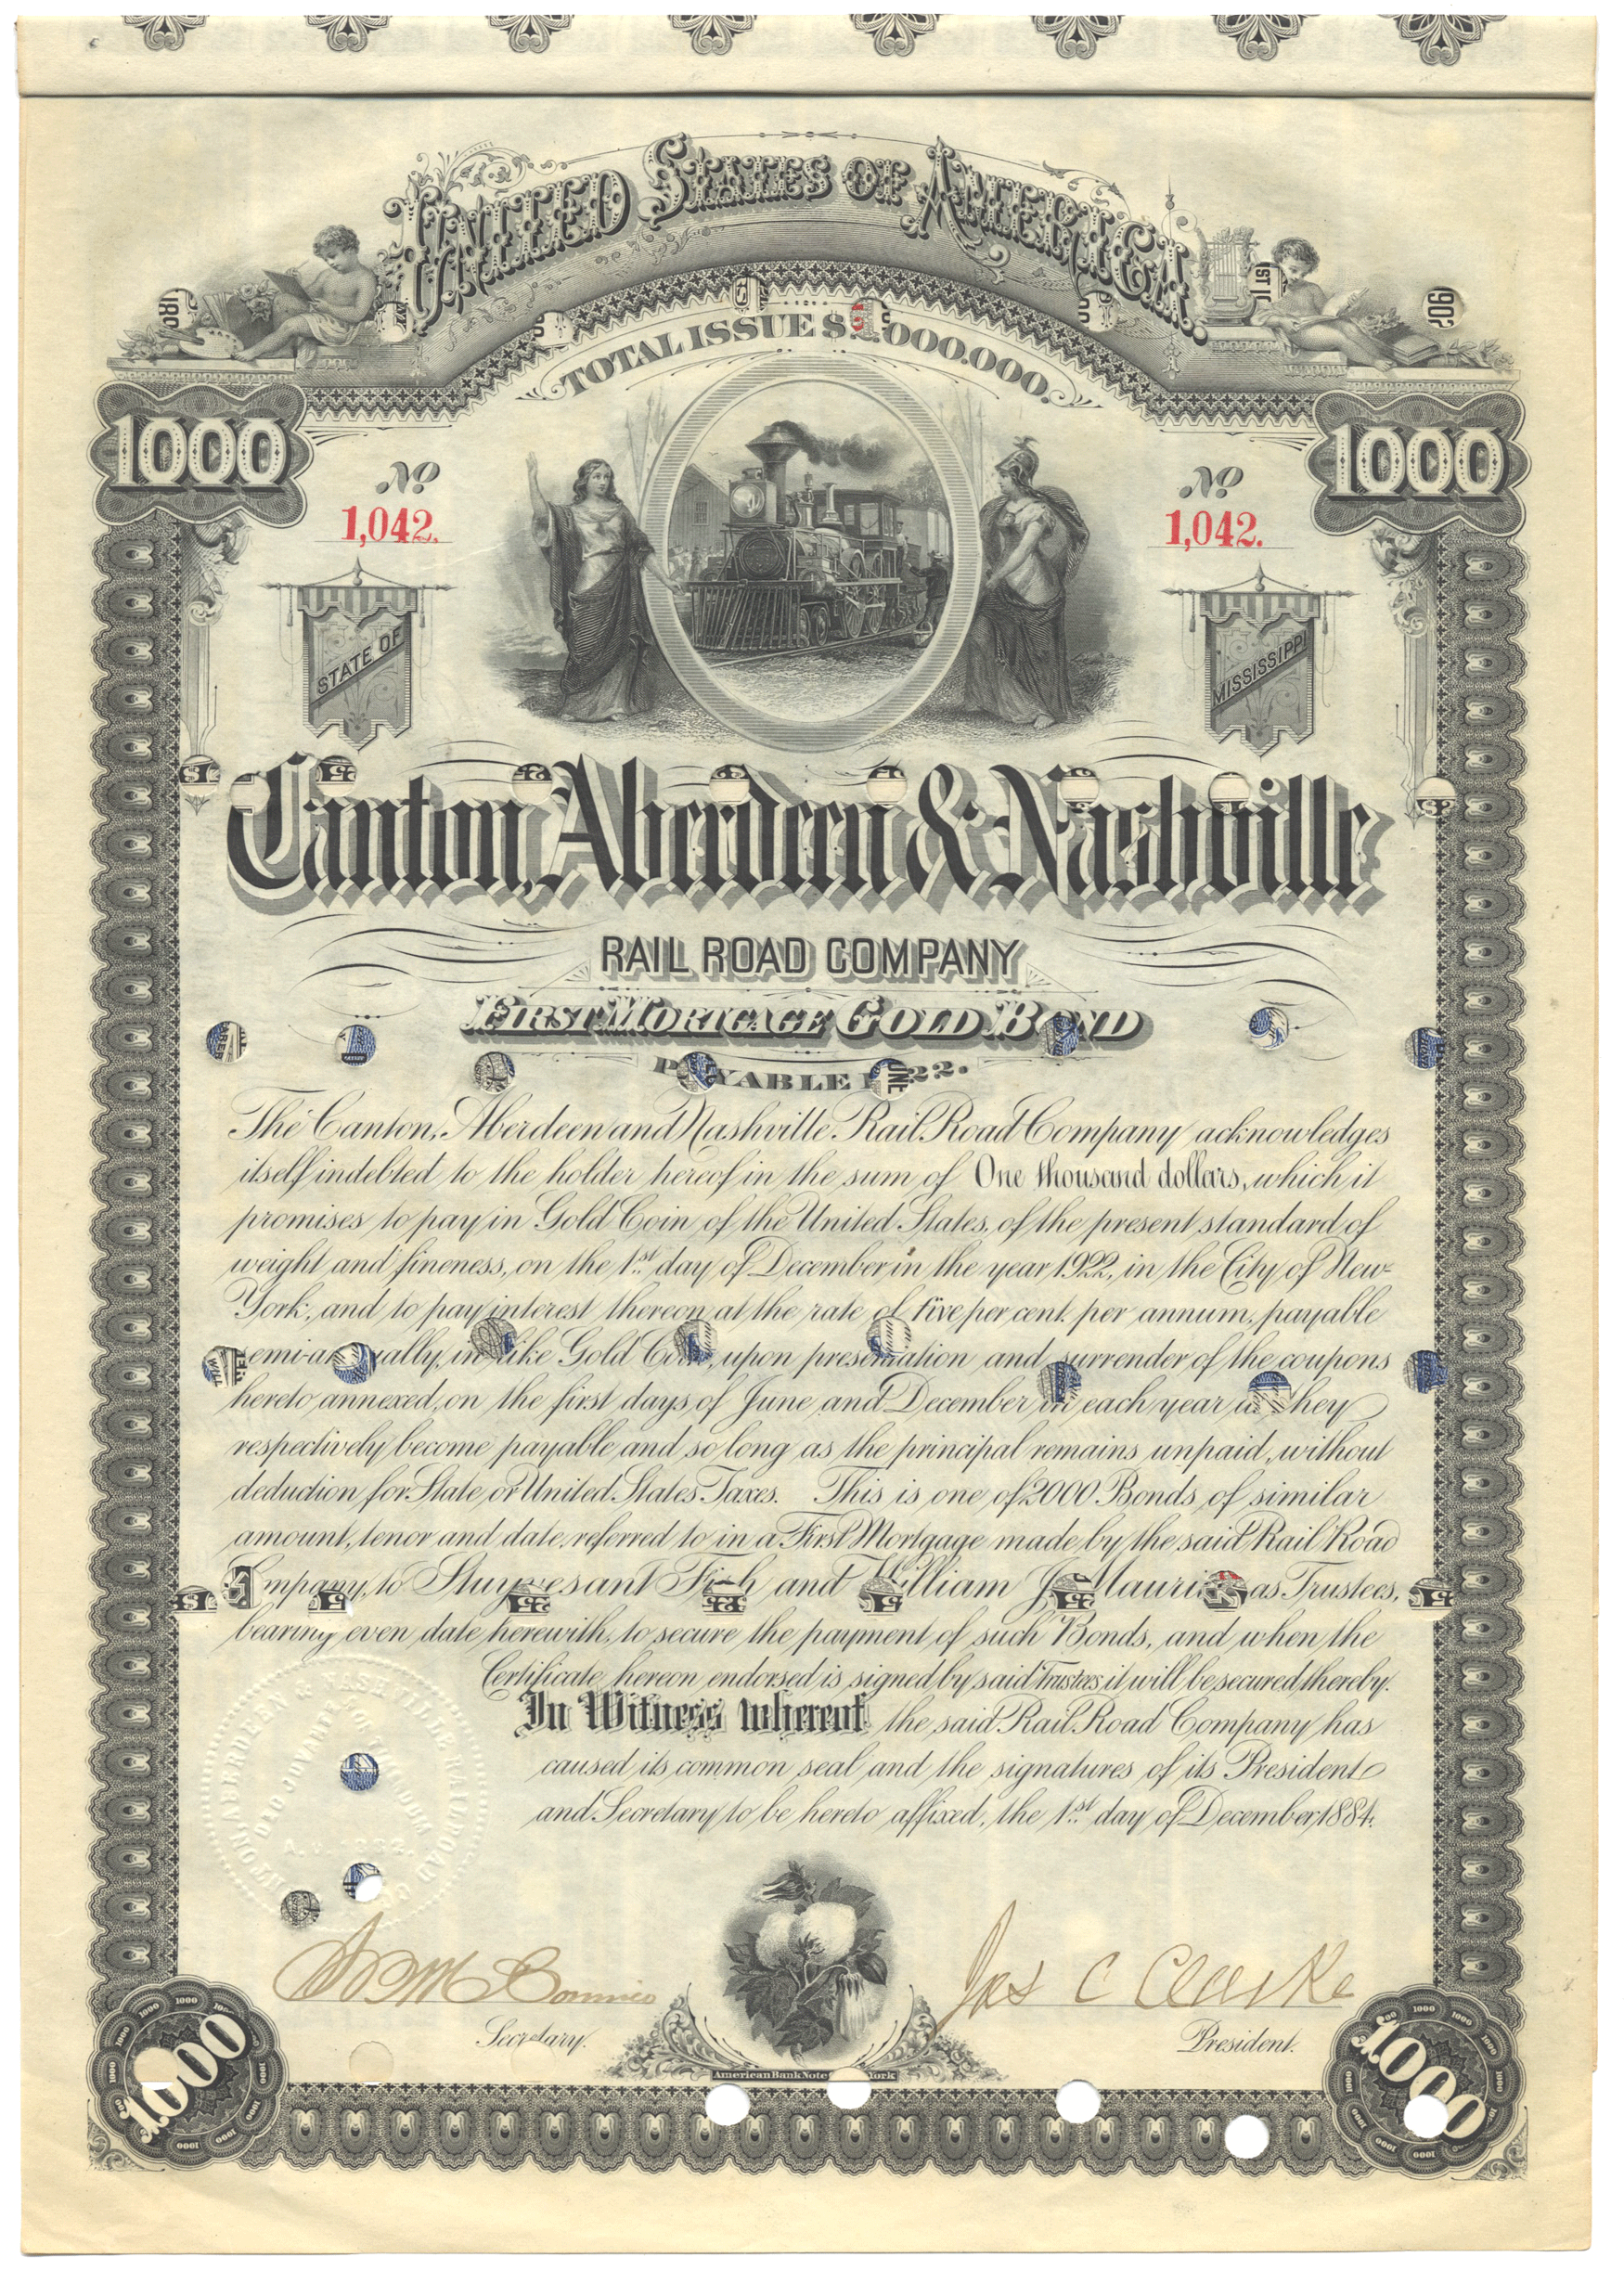 UNITED STATES OF AMERICA.
TOTAL ISSUE $ ,000.000.
1000
1000
No
1,042.
No
1,042.
STATE OF
MISSISSIPPI
Canton, Aberdeen & Nashville
RAIL ROAD COMPANY
FIRST MORTGAGE GOLD BOND
PAYABLE 1922.
The Canton, Aberdeen and Nashville Rail Road Company acknowledges
itself indebted to the holder hereof in the sum of One thousand dollars, which it
promises to pay in Gold Coin of the United States, of the present standard of
weight and fineness, on the 1st day of December in the year 1922, in the City of New-
York, and to pay interest thereon at the rate of five per cent. per annum, payable
semi-annually, in like Gold Coin, upon presentation and surrender of the coupons
hereto annexed, on the first days of June and December in each year as they
respectively become payable and so long as the principal remains unpaid, without
deduction for State or United States Taxes. This is one of 2000 Bonds, of similar
amount, tenor and date, referred to in a First Mortgage made by the said Rail Road
Company, to Stuyvesant Fish and William J. Maurice as Trustees,
bearing even date herewith, to secure the payment of such Bonds, and when the
Certificate hereon endorsed is signed by said Trustees it will be secured thereby.
In Witness whereof, the said Rail Road Company has
caused its common seal and the signatures of its President
and Secretary to be hereto affixed, the 1st day of December, 1884.
Jas C Clarke
Secretary.
President.
American Bank Note York
1000
1000